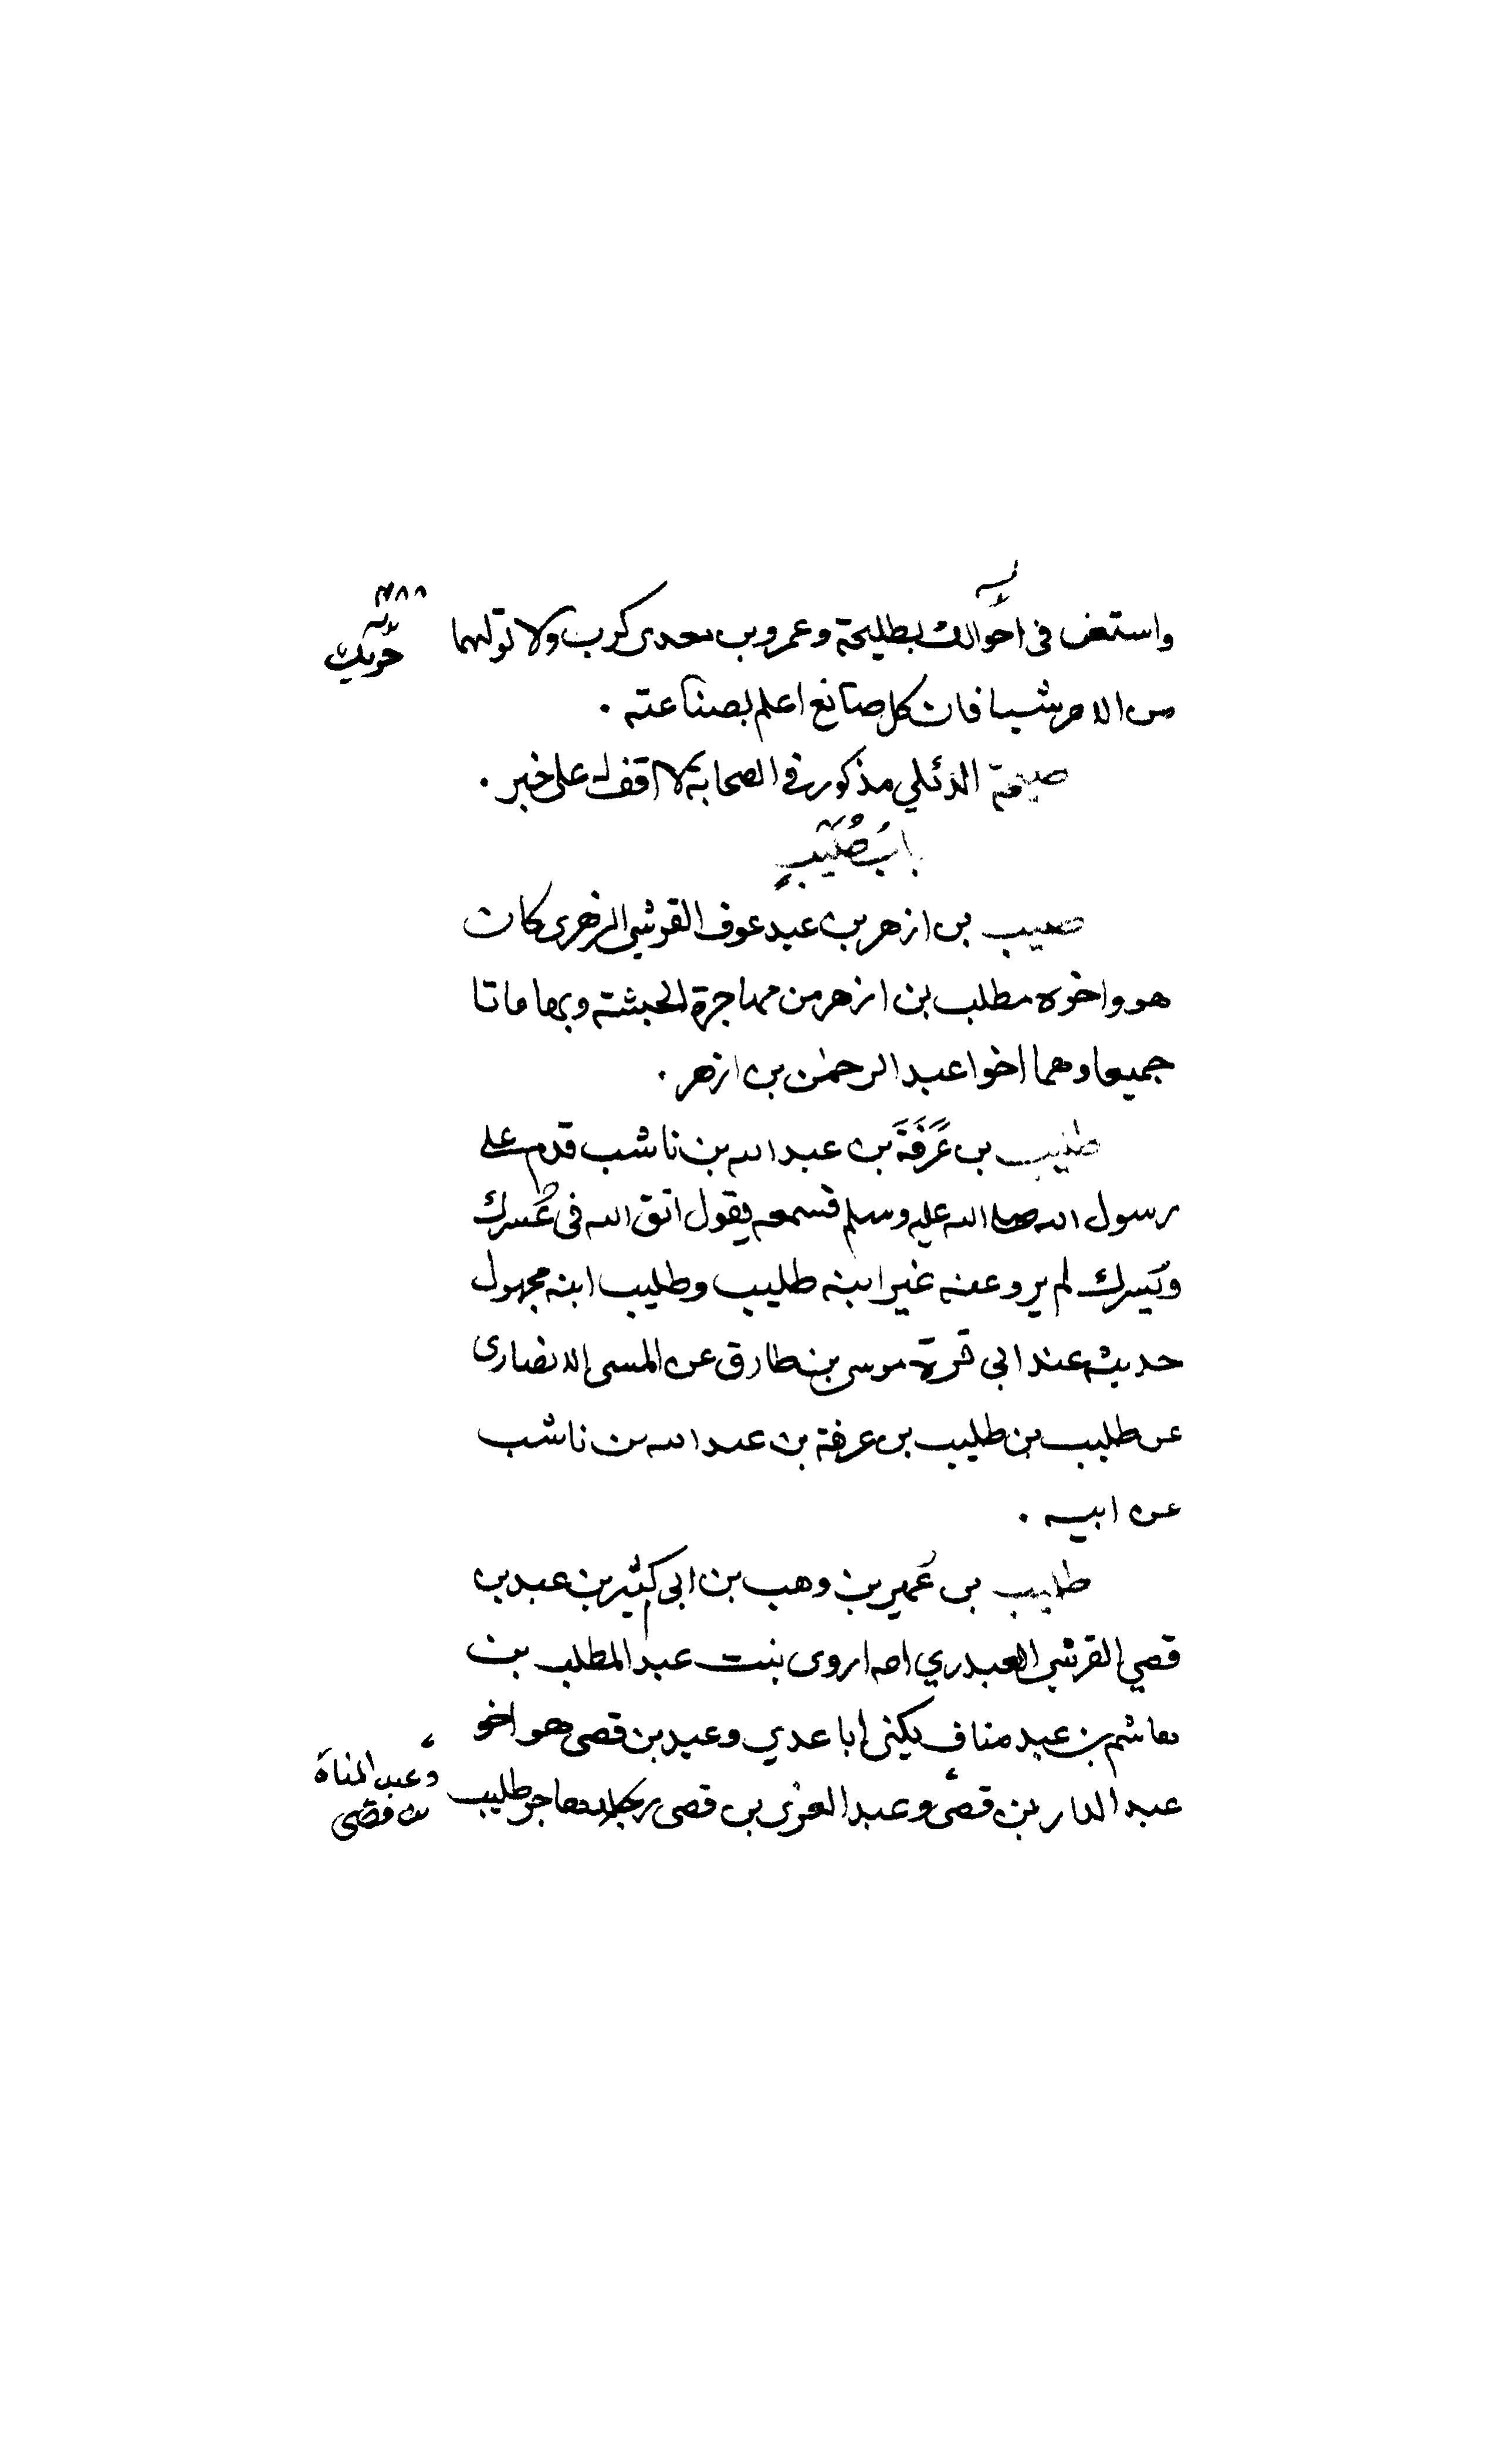 واستعن فى احوالك بطليحة وعمرو بن معدى كرب ولا تولهما
حربك
من الامر شيا فان كل صانع اعلم بصناعته .
طليحة الدئلي مذكور فى الصحابة لا اقف له على خبر .
باب طُلَيبٍ
طليب بن ازهر بن عبد عوف القرشي الزهرى كان
هو واخوه مطلب بن ازهر من مهاجرة الحبشة وبها ماتا
جميعا وهما اخوا عبد الرحمٰن بن ازهر .
طليب بن عَرَفَةَ بن عبد الله بن ناشب قدم على
رسول الله صلى الله عليه وسلم فسمعه يقول اتق الله فى عُسرك
ويُسرك لم يرو عنه غير ابنه طليب وطليب ابنه مجهول
حديثه عند ابى قرة موسى بن طارق عن المسى الانصارى
عن طليب بن طليب بن عرفة بن عبد الله بن ناشب
عن ابيه .
طليب بن عُمير بن وهب بن ابى كثير بن عبد بن
قصي القرشي العبدري امه اروى بنت عبد المطلب بن
هاشم بن عبد مناف يكنى ابا عدي وعبد بن قصى هو اخو
عبد الدار بن قصى وعبد العزى بن قصى هاجر طليب
وعبد المناة
بن قصى